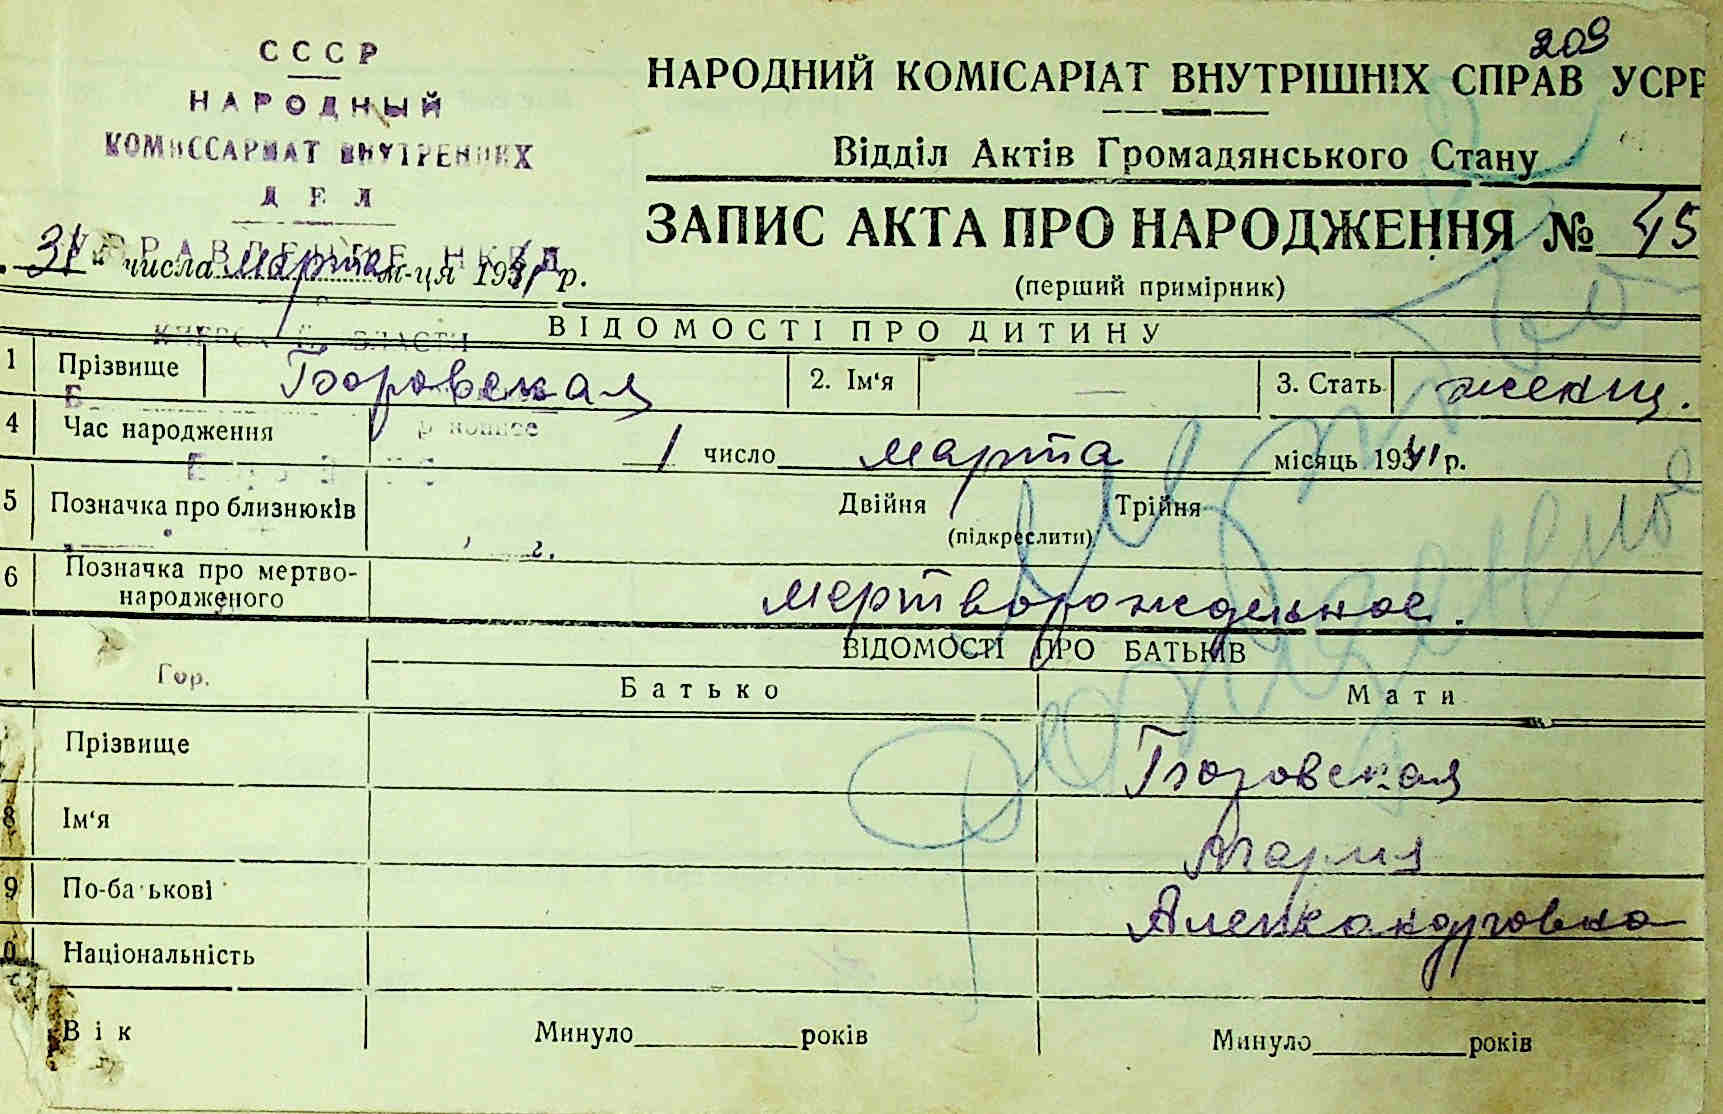 209
СССР
НАРОДНЫЙ
КОМИССАРИАТ ВНУТРЕННИХ
ДЕЛ
УПРАВЛЕНИЕ НКВД
НАРОДНИЙ КОМІСАРІАТ ВНУТРІШНІХ СПРАВ УСРР
Відділ Актів Громадянського Стану
ЗАПИС АКТА ПРО НАРОДЖЕННЯ № 45
(перший примірник)
31 числа марта м-ця 1941 р.
ВІДОМОСТІ ПРО ДИТИНУ
1 Прізвище Боровская 2. Ім‘я — 3. Стать женщ.
4 Час народження 1 число марта місяць 1941 р.
5 Позначка про близнюків Двійня Трійня
(підкреслити)
6 Позначка про мертво-
народженого мертворожденное.
ВІДОМОСТІ ПРО БАТЬКІВ
Гор.
Батько Мати
Прізвище Боровская
8 Ім‘я Мария
9 По-батькові Александровна
0 Національність
Вік Минуло роківМинуло років